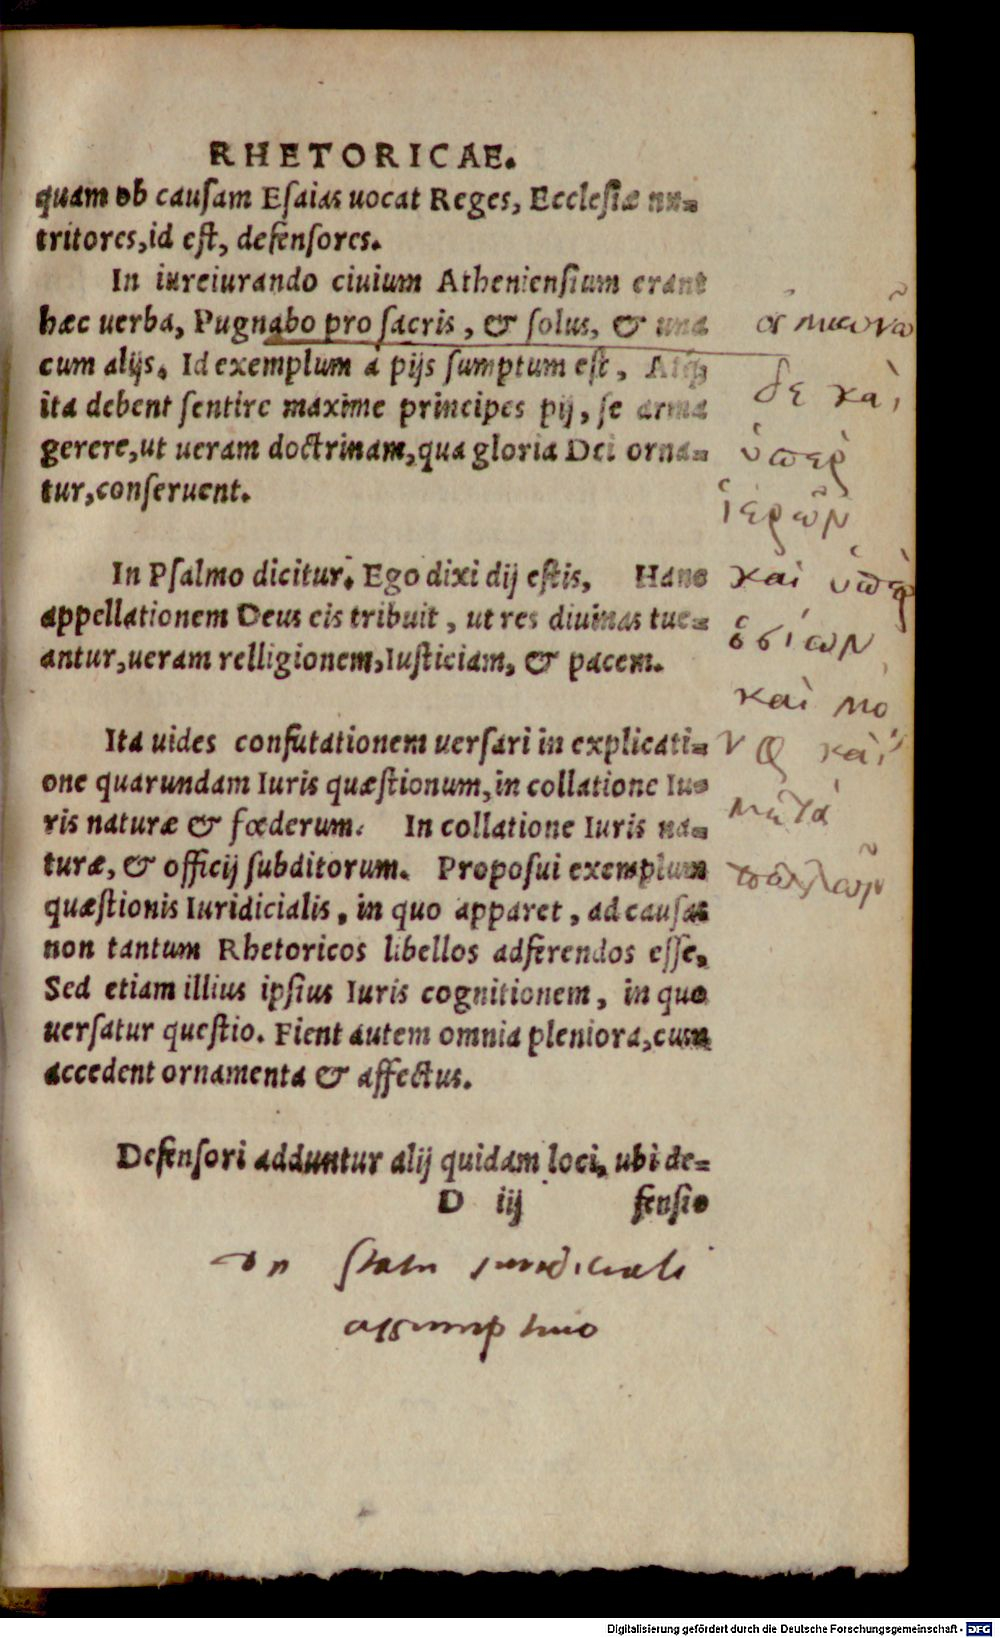 RHETORICAE.
quam ob cauſam Eſaias uocat Reges, Eccleſiæ nu=
tritores, id eſt, defenſores.
In iureiurando ciuium Athenienſium erant
hæc uerba, Pugnabo pro ſacris, & ſolus, & una
cum alijs. Id exemplum à pijs ſumptum eſt, Atq;
ita debent ſentire maxime principes pij, ſe arma
gerere, ut ueram doctrinam, qua gloria Dei orna=
tur, conſeruent.
In Pſalmo dicitur. Ego dixi dij eſtis, Hanc
appellationem Deus eis tribuit, ut res diuinas tue=
antur, ueram relligionem, Iuſticiam, & pacem.
Ita uides confutationem uerſari in explicati=
one quarundam Iuris quæſtionum, in collatione Iu=
ris naturæ & fœderum. In collatione Iuris na=
turæ, & officij ſubditorum. Propoſui exemplum
quæſtionis Iuridicialis, in quo apparet, ad cauſas
non tantum Rhetoricos libellos adferendos eſſe,
Sed etiam illius ipſius Iuris cognitionem, in quo
uerſatur queſtio. Fient autem omnia pleniora, cum
accedent ornamenta & affectus.
Defenſori adduntur alij quidam loci, ubi de=
D iij fenſio
δε καὶ
ὑπὲρ
ἱερῶν
καὶ ὑπὲρ
ὁσίων
καὶ μό
νος καὶ
μετὰ
πολλῶν
ſtatu iuridiciali
assumptiuo
Digitalisierung gefördert durch die Deutsche Forschungsgemeinschaft - DFG